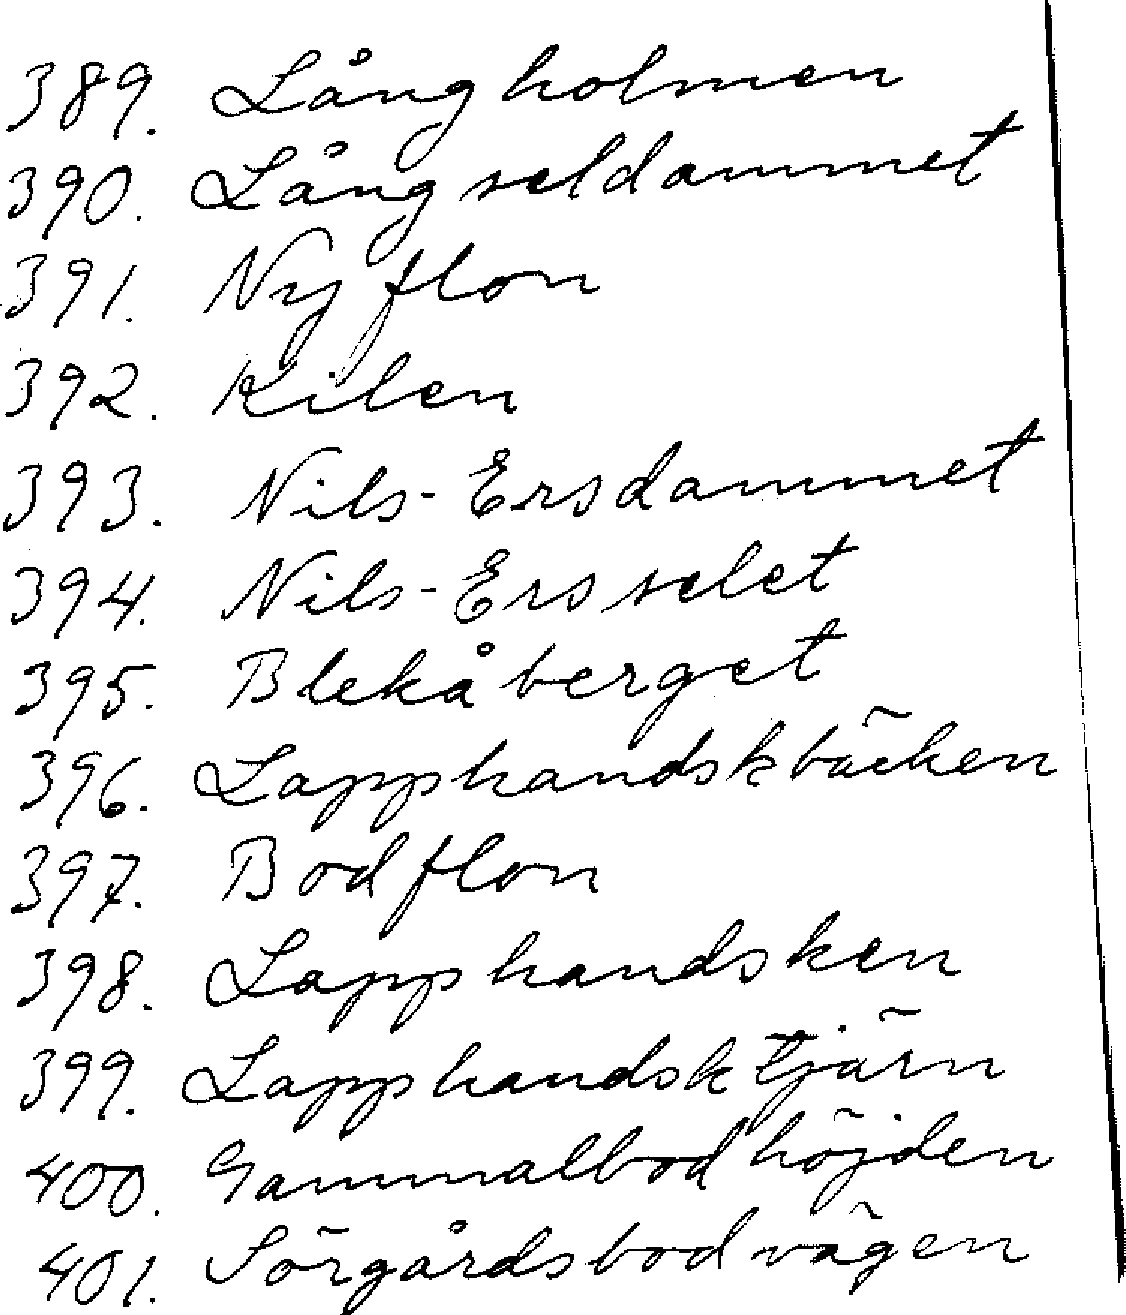 389. Långholmen
390. Långseldammet
391. Nyflon
392. Kilen
393. Nils-Ersdammet
394. Nils-Ersselet
395. Blekåberget
396. Lapphandskbäcken
397. Bodflon
398. Lapphandsken
399. Lapphandsktjärn
400. Gammalbodhöjden
401. Sörgårdsbodvägen